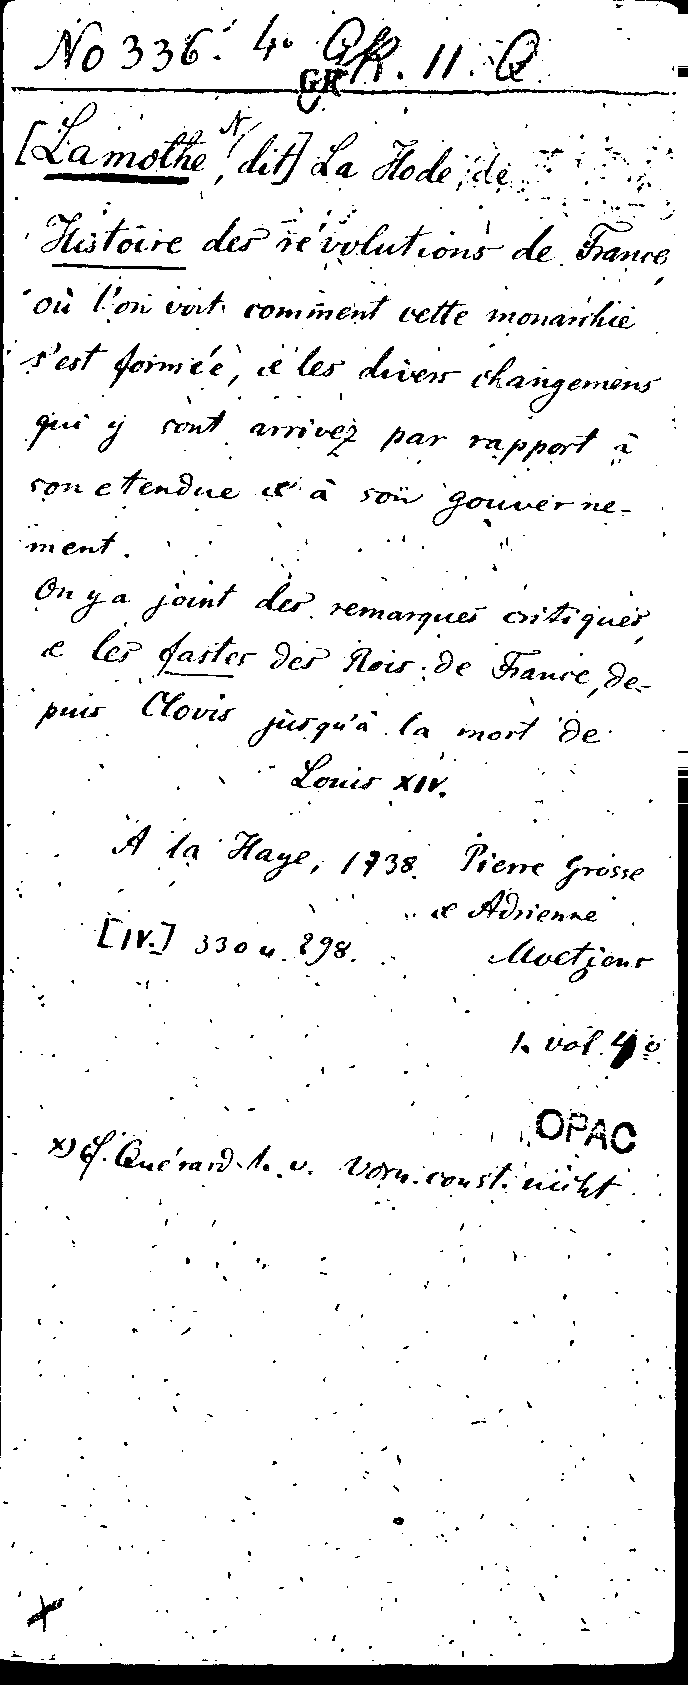 No 336. 4º GK. 11. Q
GK
[Lamothe, N, dit] La Hode, de
Histoire des révolutions de France,
où l'on voit comment cette monarchie
s'est formée, & les divers changemens
qui y sont arrivez par rapport à
son etendue & à son gouverne-
ment.
On y a joint des remarques critiques,
& les fastes des Rois de France, de-
puis Clovis jusqu'à la mort de
Louis XIV.
A la Haye, 1738. Pierre Grosse
& Adrienne
[IV.] 330 u. 298. Moetjens
1. vol. 4º
OPAC
x) cf. Quérard h. v. Vorn. const. nicht